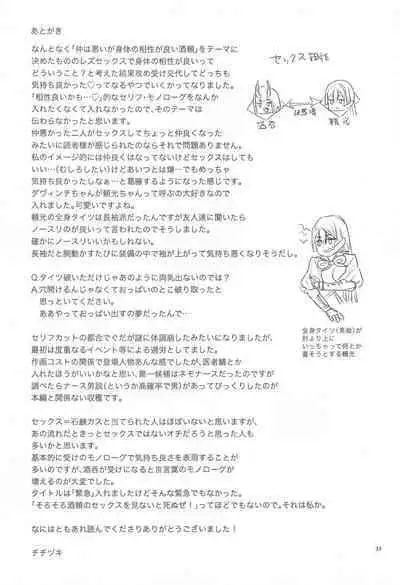 あとがき
なんとなく「仲は悪いが身体の相性が良い酒頼」をテーマに
決めたもののレズセックスで身体の相性が良いって
どういうこと?と考えた結果攻め受け交代してどっちも
気持ち良かった♡ってなるやつでいくかってなりました。
「相性良いかも…♡」的なセリフ・モノローグをなんか
入れたくなくて入れなかったので、そのテーマは
伝わらなかったと思います。
仲悪かった二人がセックスしてちょっと仲良くなった
みたいに読者様が感じられたのならそれで問題ありません。
私のイメージ的には仲良くはなってないけどセックスはしても
いい…(むしろしたい)けどあいつとは嫌…でもめっちゃ
気持ち良かったしなぁ…と葛藤するようになった感じです。
ダヴィンチちゃんが頼光ちゃんって呼ぶの大好きなので
入れました。可愛いですよね。
頼光の全身タイツは長袖派だったんですが友人達に聞いたら
ノースリのが良いって言われたのでそうしました。
確かにノースリいいかもしれない。
長袖だと腕動かすたびに装備の中で袖が上がって気持ち悪くなりそうだし。
Q.タイツ破いただけじゃあのように両乳出ないのでは?
A.穴開けるんじゃなくておっぱいのとこ破り取ったと
思っといてください。
ああやっておっぱい出すの夢だったんで…
セリフカットの都合でぐだが謎に体調崩したみたいになりましたが、
最初は度重なるイベント等による過労としてました。
作画コストの関係で登場人物あんな感じでしたが、医者鯖とか
入れてもいいかなと思い、第一候補はネモナースだったのですが
調べたらナース男説(というか高確率で男)があってびっくりしたのが
本編と関係ない収穫です。
セックス=石鹸カスと当てられた人はほぼいないと思いますが、
あの流れだときっとセックスではないオチだろうと思った人も
多いかと思います。
基本的に受けのモノローグで気持ち良さを表現することが
多いのですが、酒呑が受けになると京言葉のモノローグが
増えるのが大変でした。
タイトルは「緊急」入れましたけどそんな緊急でもなかった。
「そろそろ酒頼のセックスを見ないと死ぬぜ!」ってほどでもないので。それは私か。
なにはともあれ読んでくださりありがとうございました!
チチヅキ
セックス相性
酒呑
頼光
全身タイツ(長袖)が
肘より上に
いっちゃって何とか
直そうとする頼光
33